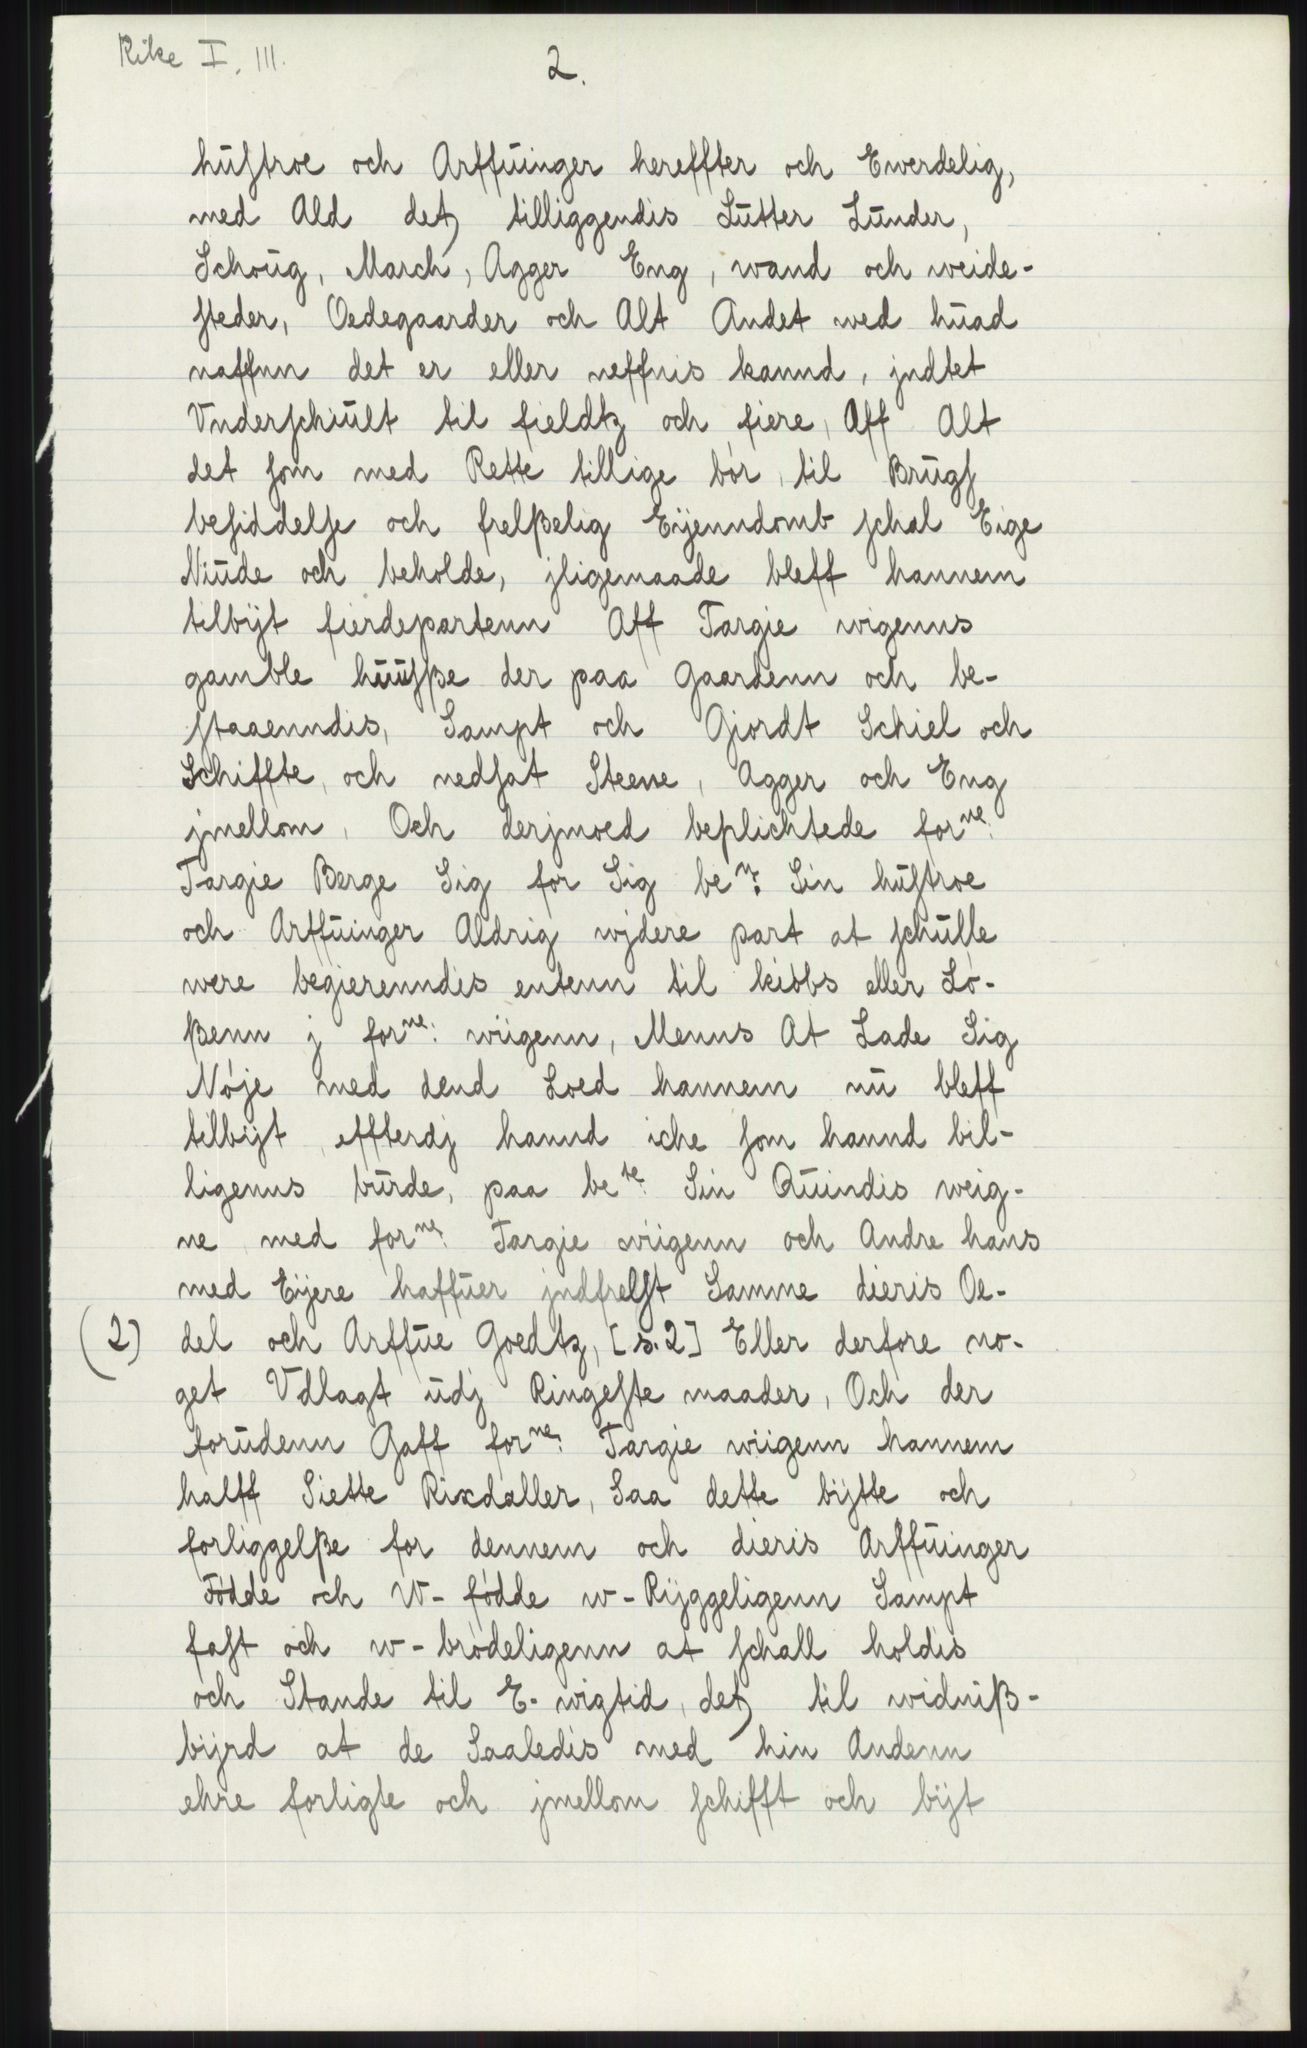 Rike I. III.
2.
huſtroe och Arffuinger hereffter och Ewerdelig,
med Ald detz tilliggendis Lutter Lunder,
Schoug, March, Agger Eng, wand och weide-
ſteder, Oedegaarder och Alt Andet wed huad
naffnn det er eller neffnis kannd, jndtet
Vnderſchiult til fieldtz och fiere, Aff Alt
det ſom med Rette tillige bør, til Brugſ
beſiddelſe och frelßelig Eÿenndomb ſchal Eige
Niude och beholde, jligemaade bleff hannem
tilbÿt fierdepartenn Aff Targie wigenns
gamble huuſße der paa gaardenn och be-
ſtaaenndis, Sampt och Giordt Schiel och
Schiffte, och nedſat Steene, Agger och Eng
jmellom, Och derjmoed beplichtede forne:
Targie Berge Sig for Sig bete: Sin huſtroe
och Arffuinger Aldrig wjdere part at ſchulle
were begierenndis entenn til kiøbs eller Lø-
ßenn j forne: wiigenn, Menns At Lade Sig
Nøje med dend Loed hannem nu bleff
tilbÿt, effterdj hannd iche ſom hannd bil-
ligenns burde, paa bete: Sin Quindis weig-
ne med forne: Targie wiigenn och Andre hans
med Eÿere haffuer jndfrelſt Samme dieris Oe-
(2) del och Arffue Goedtz, [s. 2] Eller derfore no-
get Vdlagt udj Ringeſte maader, Och der
forudenn Gaff forne: Targie wiigenn hannem
halff Siette Rixdaller, Saa dette bÿtte och
forliggelße for dennem och dieris Arffuinger
Fødde och W-fødde w-Rÿggeligenn Sampt
faſt och w-brødeligenn at ſchall holdis
och Stande til E-wigtid, detz til widniß-
bÿrd at de Saaledis med hin Andenn
ehre forligte och jmellom ſchifft och bÿt